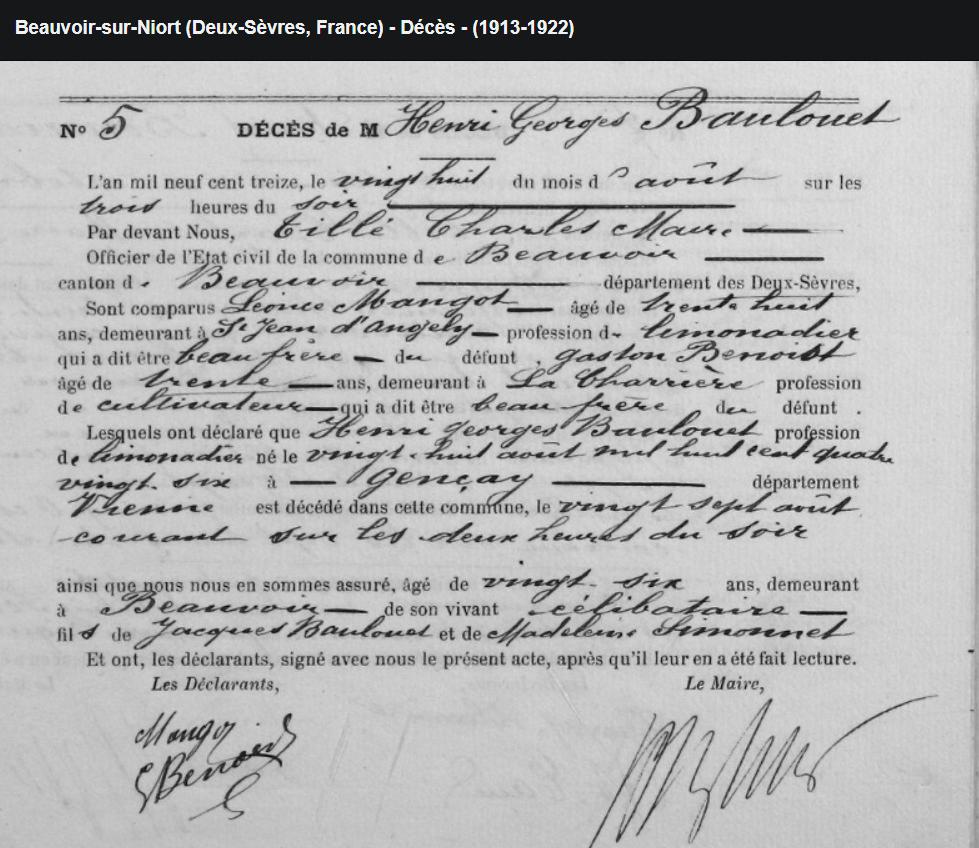 Beauvoir-sur-Niort (Deux-Sèvres, France) - Décès - (1913-1922)
N° 5 DÉCÈS de M Henri Georges Baulouet
L'an mil neuf cent treize, le vingt huit du mois d' août sur les
trois heures du soir
Par devant Nous, Tillé Charles Maire
Officier de l'Etat civil de la commune de Beauvoir
canton de Beauvoir département des Deux-Sèvres,
Sont comparus Léonce Mangot âgé de trente huit
ans, demeurant à St Jean d'angely profession de limonadier
qui a dit être beau frère du défunt . gaston Benoist
âgé de trente ans, demeurant à La Charrière profession
de cultivateur qui a dit être beau frère du défunt .
Lesquels ont déclaré que Henri georges Baulouet profession
de limonadier né le vingt-huit août mil huit cent quatre
vingt six à Gençay département
Vienne est décédé dans cette commune, le vingt sept août
courant sur les deux heures du soir
ainsi que nous nous en sommes assuré, âgé de vingt-six ans, demeurant
à Beauvoir de son vivant célibataire
fils de Jacques Baulouet et de Madeleine Simonnet
Et ont, les déclarants, signé avec nous le présent acte, après qu'il leur en a été fait lecture.
Les Déclarants, Le Maire,
Mangot
G Benoist